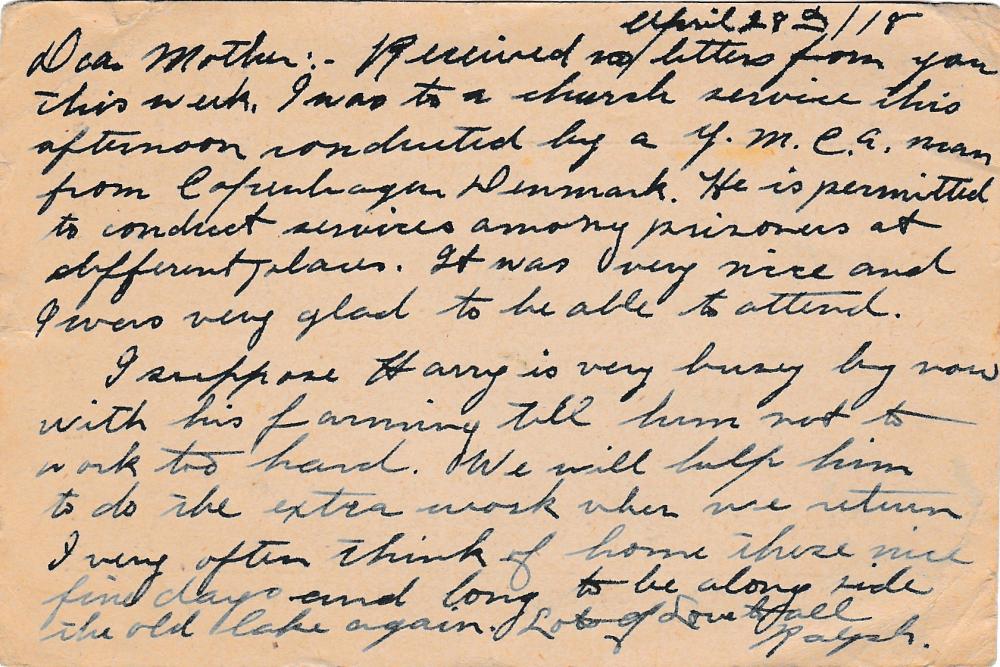 April 28th/18
Dear Mother:- Received no letters from you
this week. I was to a church service this
afternoon conducted by a Y.M.C.A. man
from Copenhagen Denmark. He is permitted
to conduct services among prisoners at
different places. It was very nice and
I was very glad to be able to attend.
I suppose Harry is very busy by now
with his farming tell him not to
work too hard. We will help him
to do the extra work when we return
I very often think of home these nice
fine days and long to be along side
the old lake again. Lots of Love to all
Ralph.